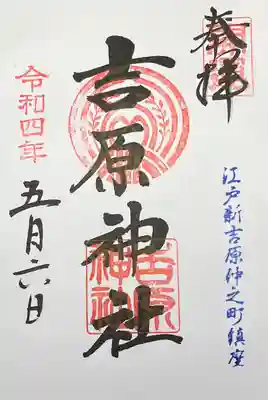 奉拝
江戸新吉原仲之町鎮座
吉原神社
吉原
神社
令和四年
五月六日